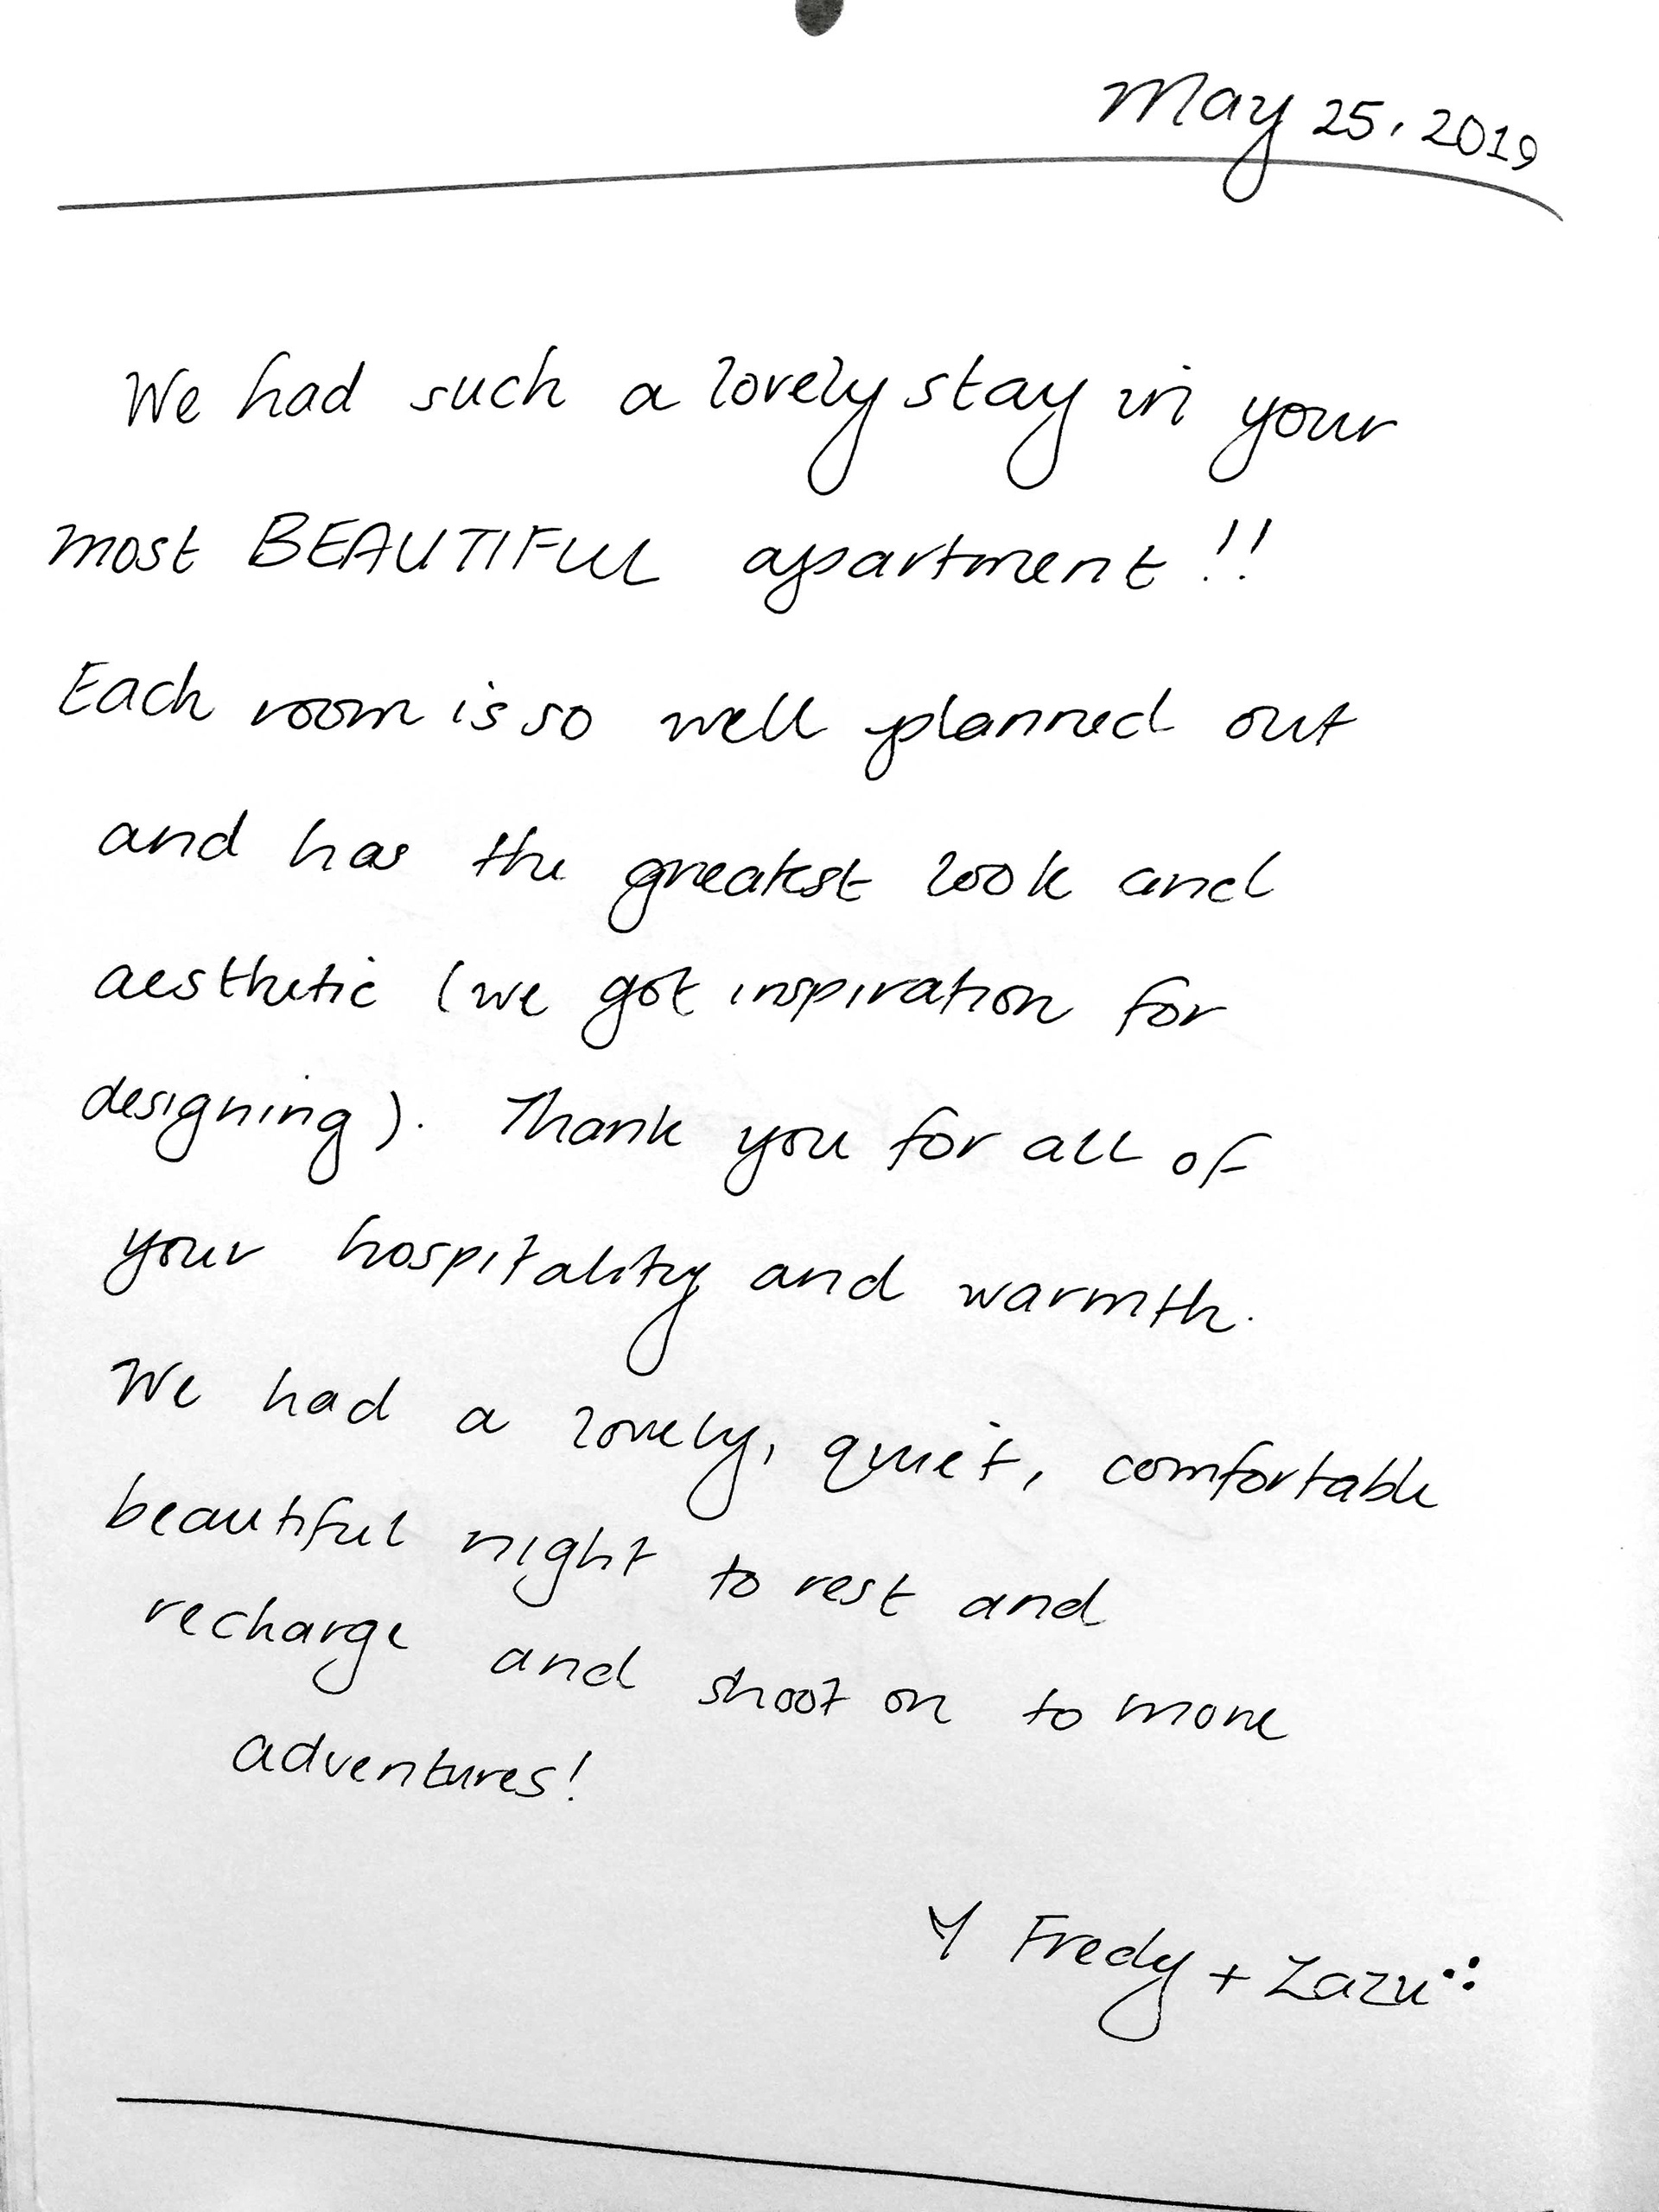 May 25, 2019
We had such a lovely stay in your
most BEAUTIFUL apartment!!
Each room is so well planned out
and has the greatest look and
aesthetic (we got inspiration for
designing). Thank you for all of
your hospitality and warmth.
We had a lovely, quiet, comfortable
beautiful night to rest and
recharge and shoot on to more
adventures!
Fredy + Zazu